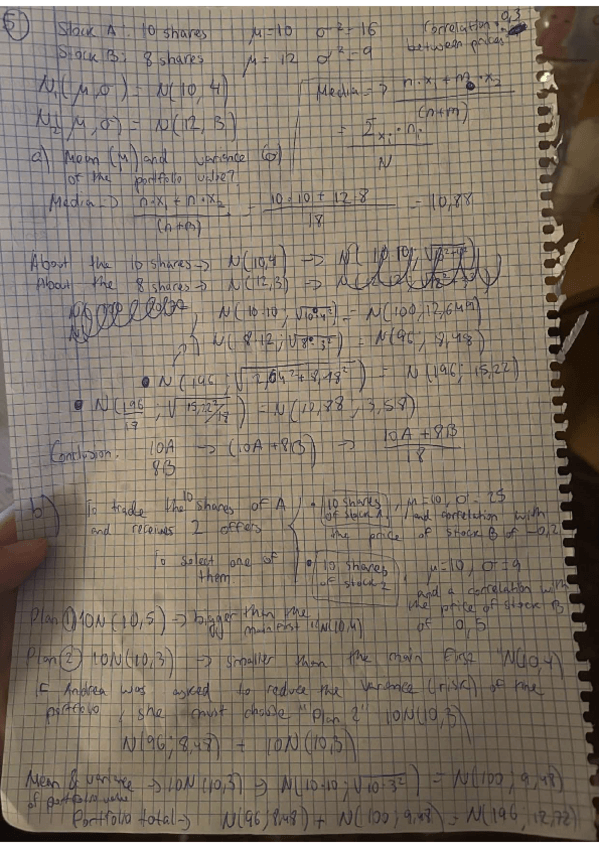 5) Stock A: 10 shares μ=10 σ²=16 Correlation: 0,3
Stock B: 8 shares μ=12 σ²=9 between prices
N₁(μ,σ) = N(10,4) Media => n·x₁ + m·x₂ / (n+m)
N₂(μ,σ) = N(12,3) = Σxᵢ·nᵢ / N
a) Mean (μ) and variance (σ)
of the portfolio value?
Media => n·x₁ + n·x₂ / (n+m) = 10·10 + 12·8 / 18 = 10,88
About the 10 shares -> N(10,4) ->
About the 8 shares -> N(12,3) ->
N(10·10; √10·4²) = N(100; 12,649)
N(8·12; √8·3²) = N(96; 8,48)
• N(196; √12,64²+8,48²) = N(196; 15,22)
• N(196/18; √15,22²/18) = N(10,88; 3,58)
Conclusion: 10A 8B -> (10A+8B) -> 10A+8B / 18
b) To trade the 10 shares of A • 10 shares of stock 1, μ=10, σ=25
and receives 2 offers and correlation with
the price of stock B of -0,2
To select one of them • 10 shares of stock 2, μ=10, σ=9
and a correlation with
the price of stock B
of 0,5
Plan ① 10N(10,5) -> bigger than the main first "N(10,4)
Plan ② 10N(10,3) -> smaller than the main first "N(10,4)
If Andrea was asked to reduce the variance (risk) of the
portfolio, she must choose "Plan 2" 10N(10,3)
N(96; 8,48) + 10N(10,3)
Mean & variance -> 10N(10,3) => N(10·10; √10·3²) = N(100; 9,48)
of portfolio value
Portfolio total -> N(96; 8,48) + N(100; 9,48) = N(196; 12,72)